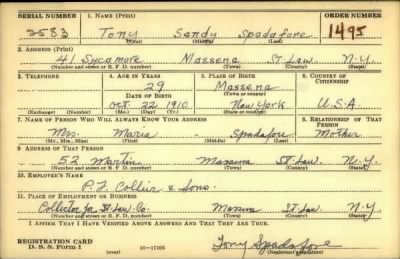 SERIAL NUMBER 1. NAME (Print) ORDER NUMBER
2583 Tony Sandy Spadafore 1495
(First) (Middle) (Last)
2. ADDRESS (Print)
41 Sycamore Massena St Law N.Y.
(Number and street or R. F. D. number) (Town) (County) (State)
3. TELEPHONE 4. AGE IN YEARS 5. PLACE OF BIRTH 6. COUNTRY OF CITIZENSHIP
29 Massena
(Town)
DATE OF BIRTH
Oct 22 1910 New York U.S.A
(Exchange) (Number) (Mo.) (Day) (Yr.) (State or country)
7. NAME OF PERSON WHO WILL ALWAYS KNOW YOUR ADDRESS 8. RELATIONSHIP OF THAT PERSON
Mrs. Maria Spadafore Mother
(Mr., Mrs., Miss) (First) (Middle) (Last)
9. ADDRESS OF THAT PERSON
52 Martin Massena St Law. N.Y.
(Number and street or R. F. D. number) (Town) (County) (State)
10. EMPLOYER'S NAME
P. F. Collier & Sons.
11. PLACE OF EMPLOYMENT OR BUSINESS
Collector for St Law Co. Massena St Law N.Y
(Number and street or R. F. D. number) (Town) (County) (State)
I AFFIRM THAT I HAVE VERIFIED ABOVE ANSWERS AND THAT THEY ARE TRUE.
REGISTRATION CARD
D. S. S. Form 1 (over) 16-17105 Tony Spadafore
(Registrant's signature)